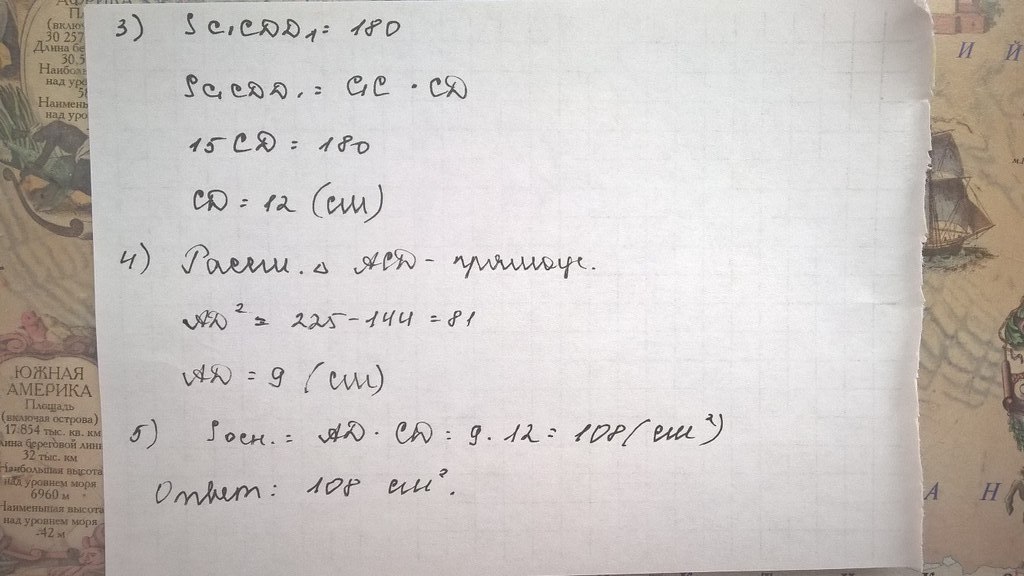 АФРИКА
30 257
Длина бе
30,5
Наибол
над уро
Наимень
над уро
3) S C₁CDD₁ = 180
S C₁CDD₁ = C₁C · CD
15 CD = 180
CD = 12 (см)
4) Рассм. △ ACD - прямоуг.
AD² = 225 - 144 = 81
AD = 9 (см)
5) Sосн. = AD · CD = 9 · 12 = 108 (см²)
Ответ: 108 см².
ЮЖНАЯ
АМЕРИКА
Площадь
(включая острова)
17 854 тыс. кв. км
лина береговой лини
32 тыс. км
Наибольшая высота
над уровнем моря
6960 м
Наименьшая высота
над уровнем моря
-42 м
И Й
А Н